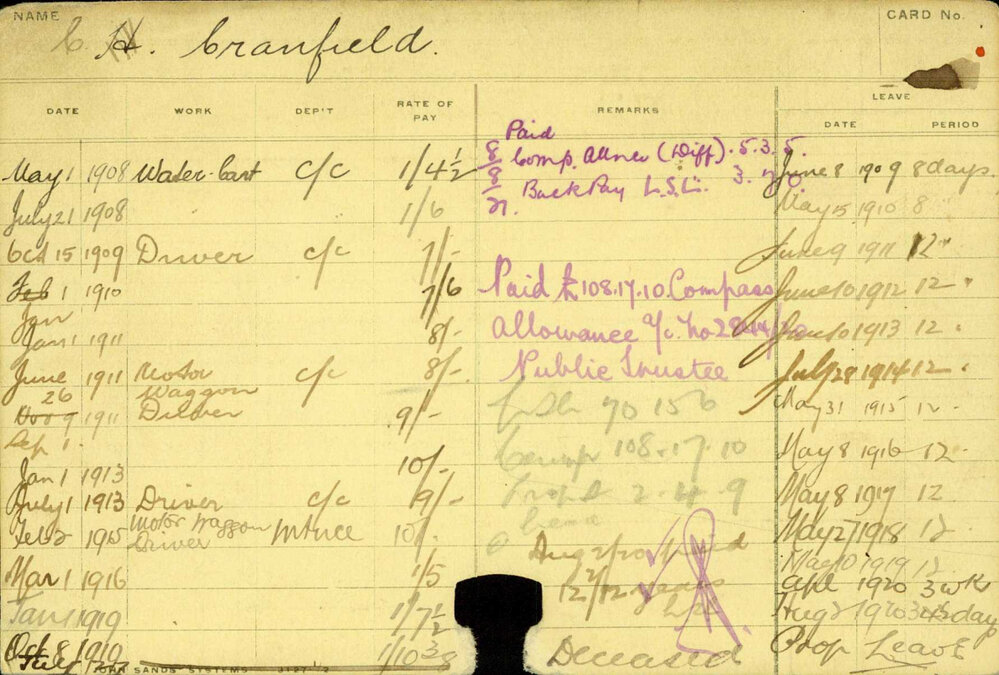 NAME
CARD No.
C. H. Cranfield.
LEAVE
DATE WORK DEP'T RATE OF PAY REMARKS DATE PERIOD
Paid
8/8/21. Comp. Allnce (Diff). 5.3.5.
Back Pay L.S.L. 3.
May 1 1908 Water-Cart C/C 1/4½ June 8 1909 8 days.
July 21 1908 1/6 May 15 1910 8 "
Oct 15 1909 Driver C/C 7/- June 9 1911 12 "
Feb 1 1910 7/6 Paid £108.17.10. Compass June 10 1912 12 "
Jan
Jan 1 1911 8/- Allowance a/c No 1913 12 .
June 26 1911 Motor Waggon Driver C/C 8/- Public Trustee July 28 1914 12 .
Nov 9 1911 9/- 70 156 May 31 1915 12 .
Sep 1.
Jan 1 1913 10/- 108.17.10 May 8 1916 12 .
July 1 1913 Driver C/C 9/- 2.4.9 May 8 1917 12
Feb 2 1915 Motor Waggon Driver Mtnce 10/- May 27 1918 12
May 10 1919 12
Mar 1 1916 1/5 12 2/12 years Apl 1920 3 wks
Jan 1 1919 1/7½ Aug 2 1920 day
Oct 8 1919 1/10⅜ Deceased Prop Leave
SANDS SYSTEMS 3127-12